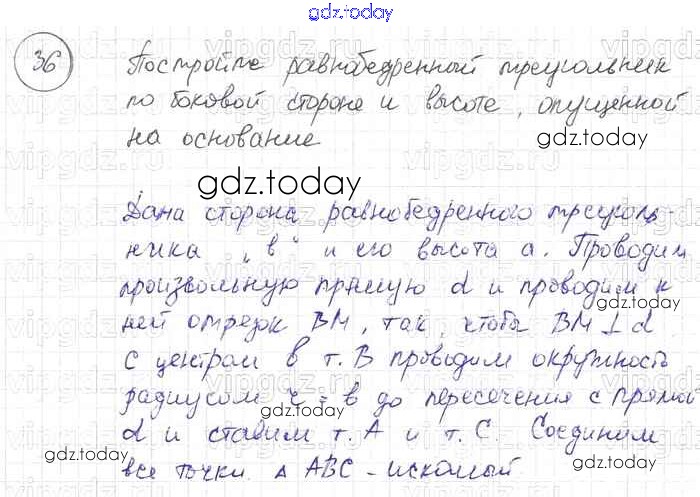 gdz.today
36
Постройте равнобедренный треугольник
по боковой стороне и высоте, опущенной
на основание
gdz.today
gdz.today
Дана сторона равнобедренного треуголь-
ника „в“ и его высота а. Проводим
произвольную прямую d и проводим к
ней отрезок ВМ, так, чтобы ВМ ⊥ d.
gdz.today
С центром в т. В проводим окружность
радиусом r = в до пересечения с прямой
gdz.today
d и ставим т. А и т. С. Соединим
все точки. ▵ АВС - искомый.
gdz.today
gdz.today